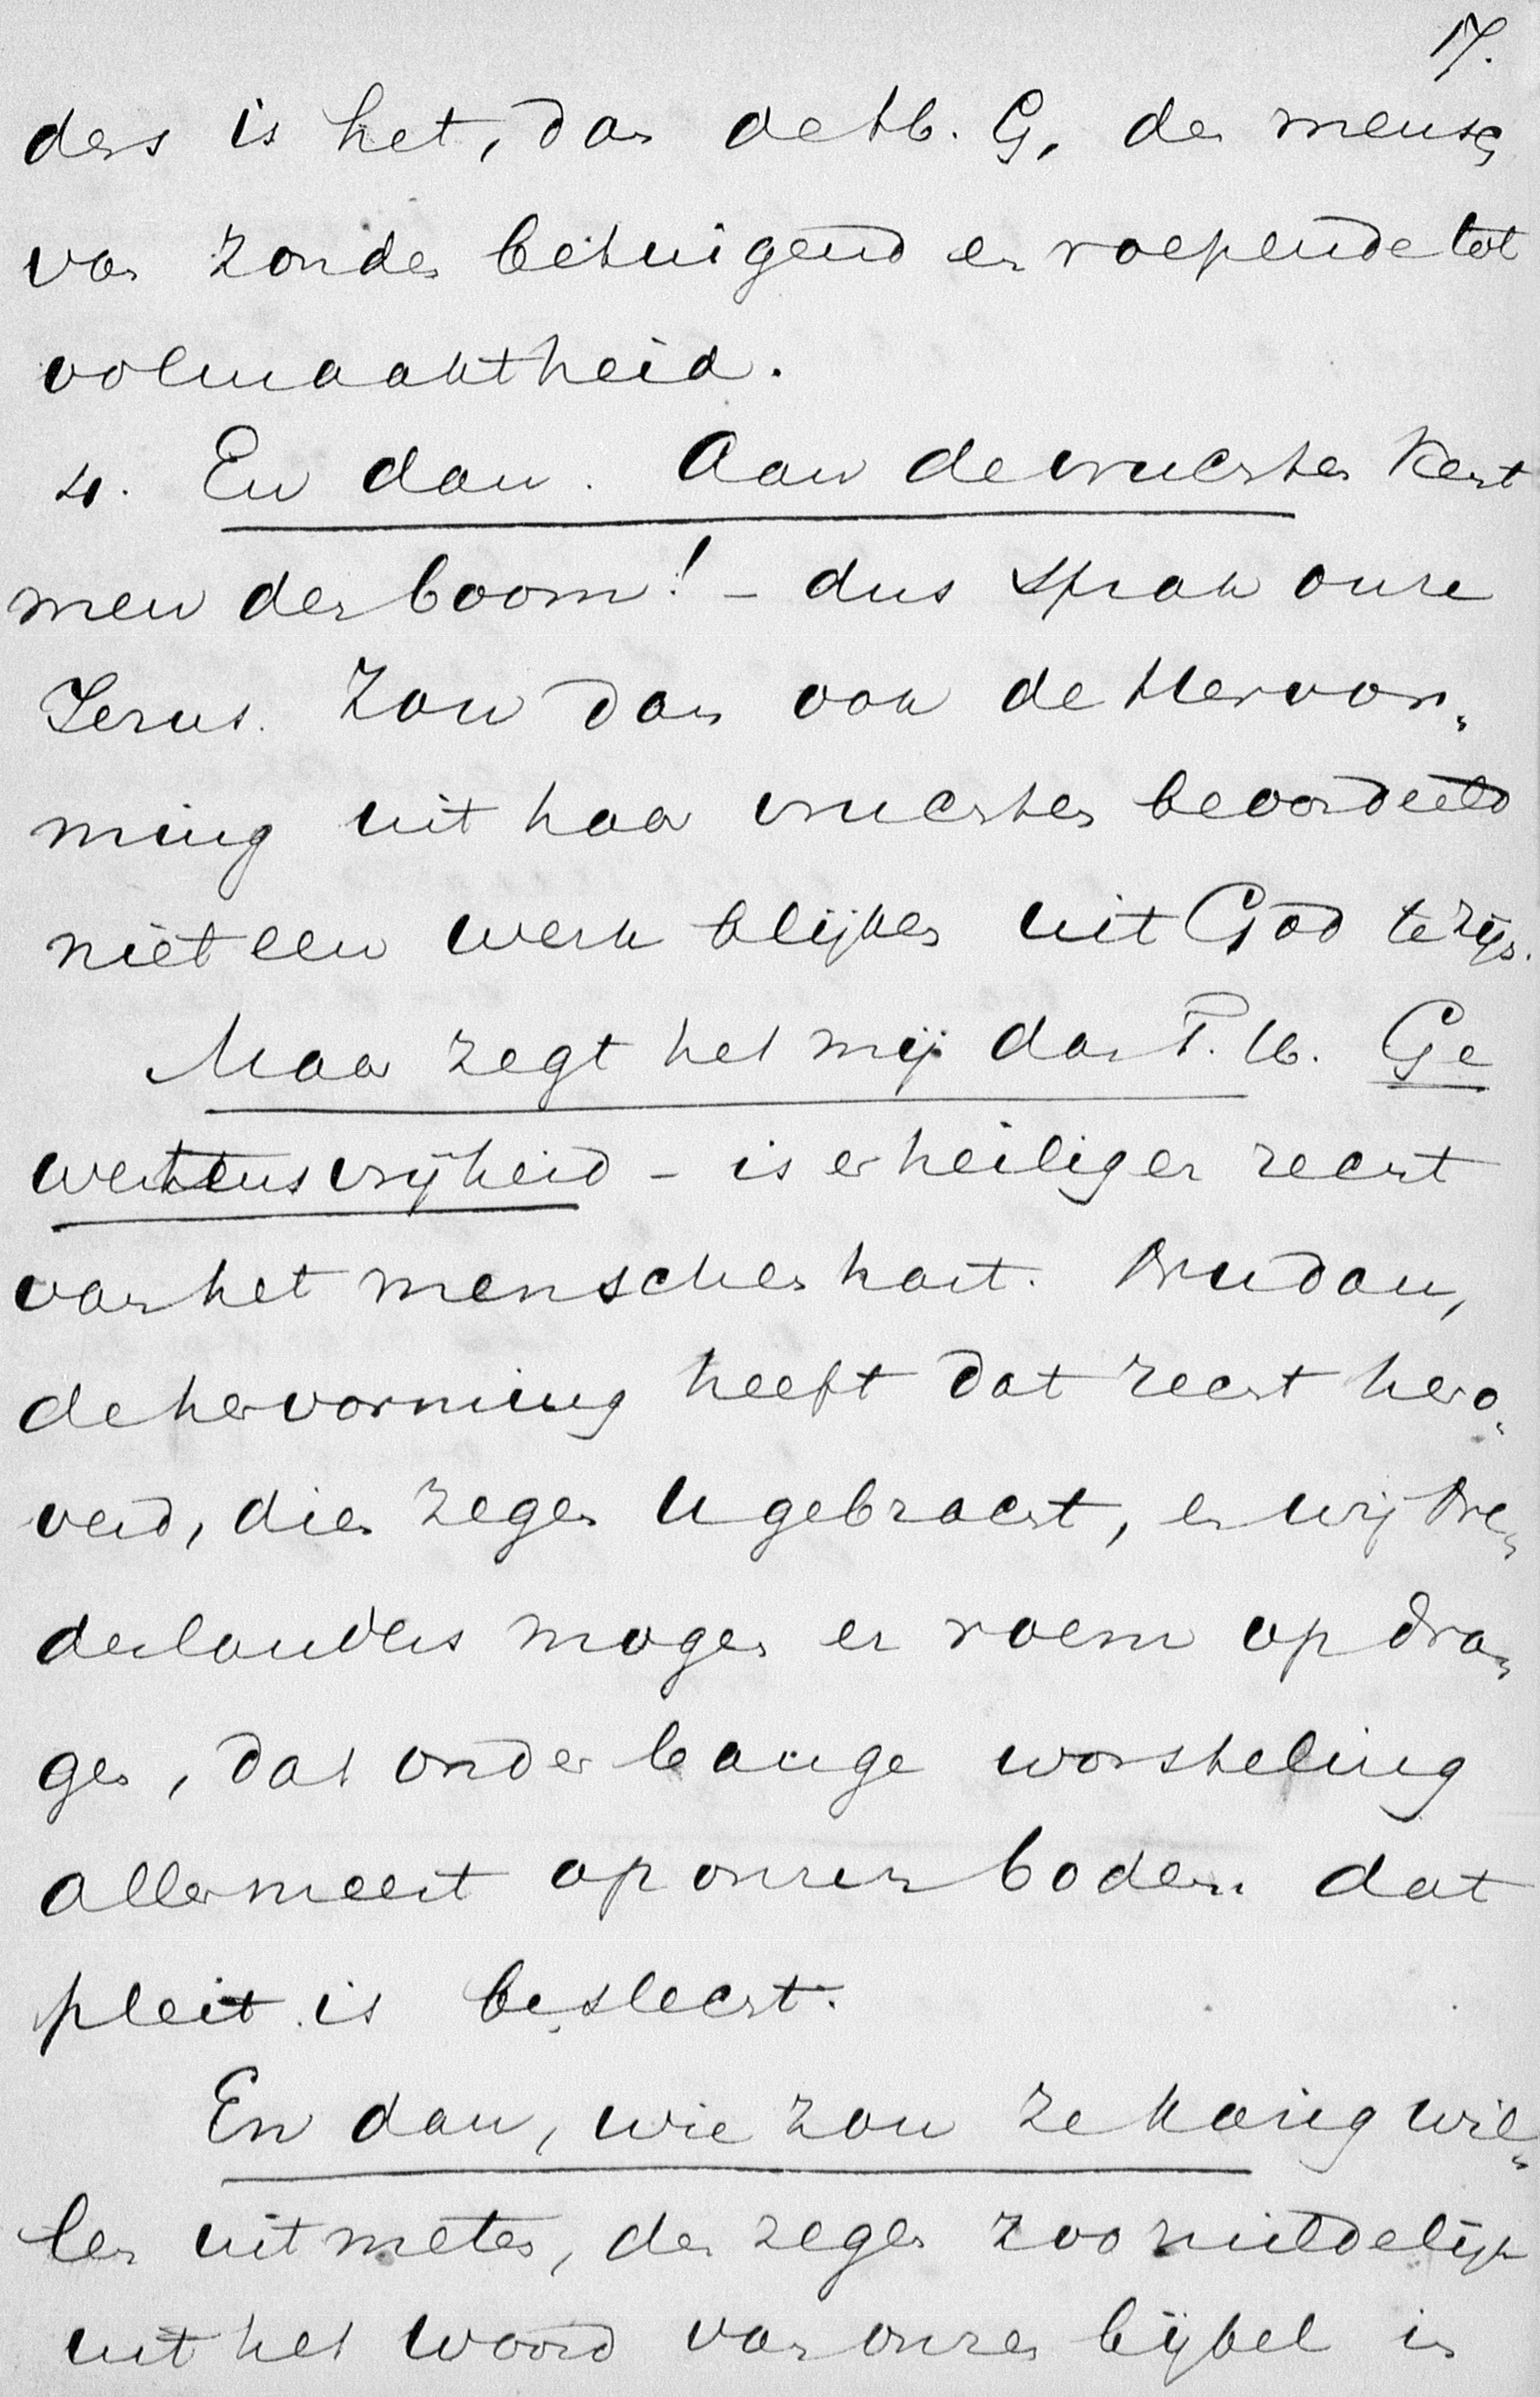 17.
ders is het, dan de H. G, den mensch
van zonden betuigend en roepende tot
volmaaktheid.
4. En dan. Aan de vruchten kent
men den boom! - dus sprak onze
Jezus. Zou dan ook de Hervor„
ming uit haar vruchten beoordeeld
niet een werk blijken uit God te zijn.
Maar zegt het mij dan T. H. Ge
wetensvrijheid - is er heiliger recht
van het menschenhart. Nu dan,
de hervorming heeft dat recht hero„
verd, dien zegen U gebracht, en wij Ne„
derlanders mogen er roem op dra„
gen, dat onder bange worsteling
allermeest op onzen bodem dat
pleit is beslecht.
En dan, wie zou ze karig wil„
len uitmeten, den zegen zoo mildelijk
uit het woord van onzen bijbel in